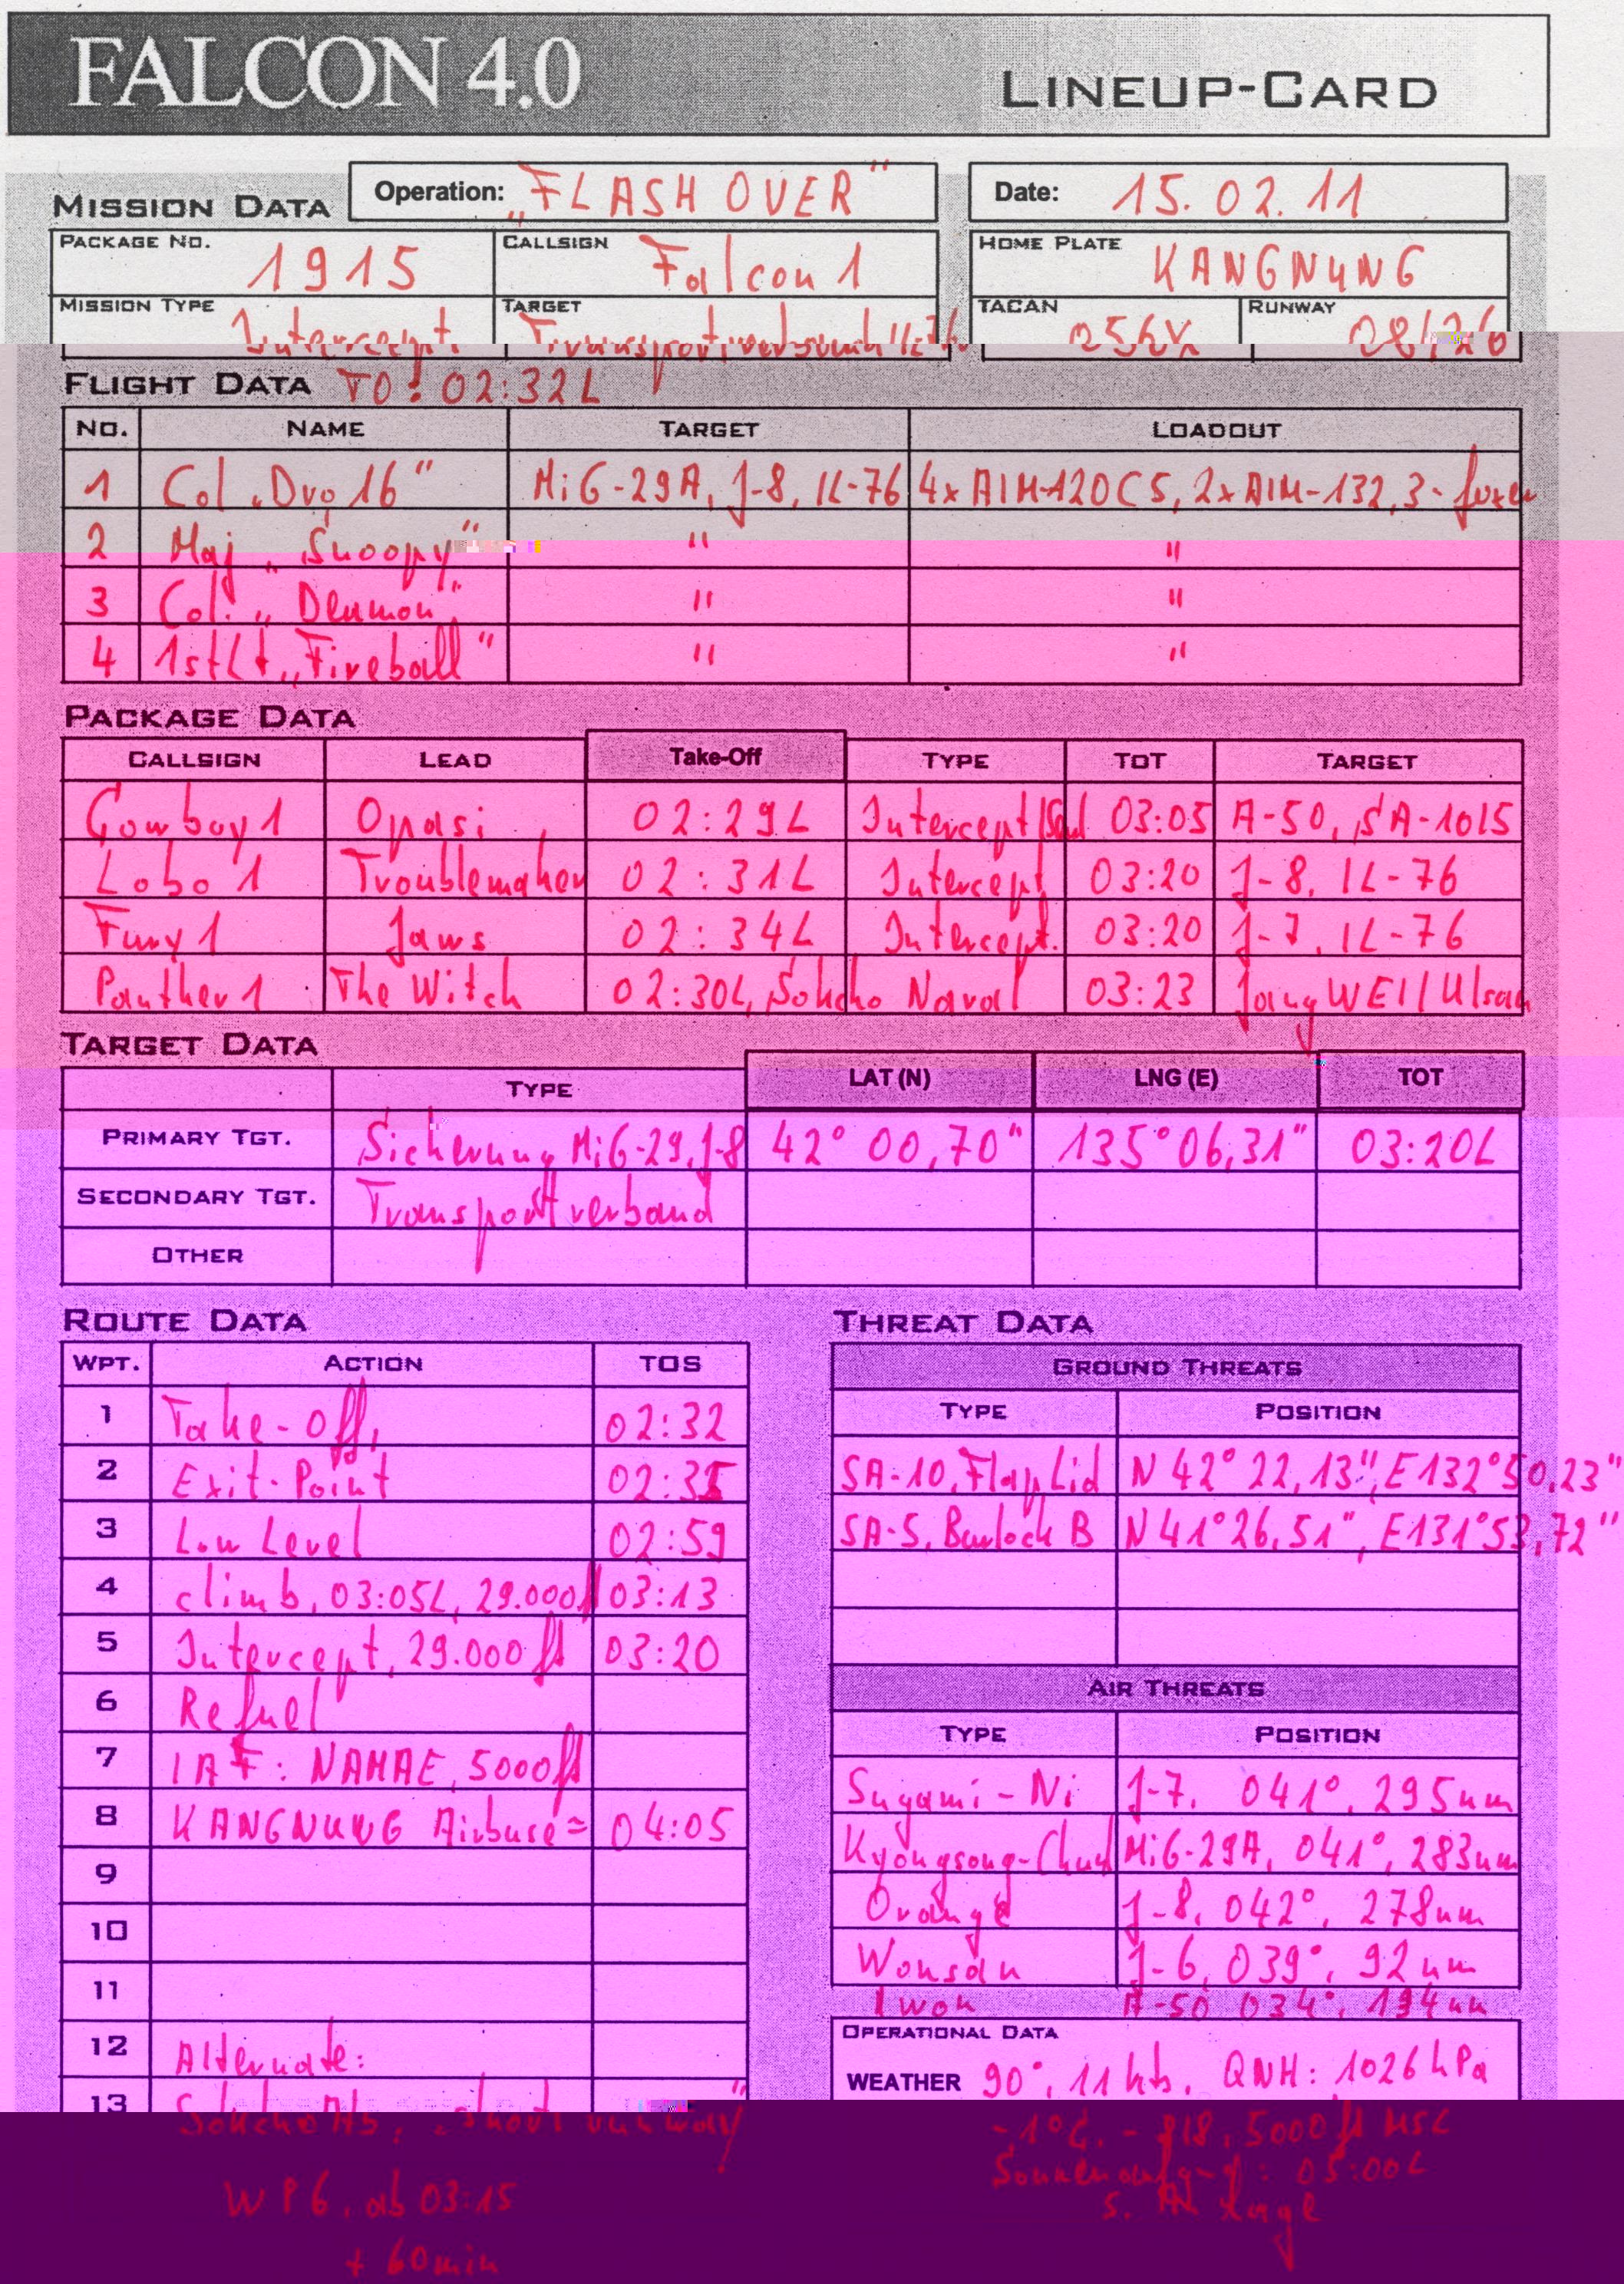 FALCON 4.0 LINEUP-CARD
MISSION DATA Operation: „FLASH OVER" Date: 15.02.11
PACKAGE NO. 1915 CALLSIGN Falcon 1 HOME PLATE KANGNUNG
MISSION TYPE Intercept TARGET Transportverband IL-76 TACAN 056X RUNWAY 08/26
FLIGHT DATA TO: 02:32L
NO. NAME TARGET LOADOUT
1 Col „Dvo16" MiG-29A, J-8, IL-76 4x AIM-120C5, 2x AIM-132, 3-
2 Maj „Snoopy" " "
3 Col. „Deamon" " "
4 1stLt „Fireball" " "
PACKAGE DATA
CALLSIGN LEAD Take-Off TYPE TOT TARGET
Cowboy 1 Opasi 02:29L Intercept 03:05 A-50, SA-10/5
Lobo 1 Troublemaker 02:31L Intercept 03:20 J-8, IL-76
Fury 1 Jaws 02:34L Intercept. 03:20 J-7, IL-76
Panther 1 The Witch 02:30L, Sokcho Naval 03:23 Jang WEI/Ulsan
TARGET DATA
TYPE LAT (N) LNG (E) TOT
PRIMARY TGT. Sicherung MiG-29, J-8 42° 00,70" 135° 06,31" 03:20L
SECONDARY TGT. Transportverband
OTHER
ROUTE DATA THREAT DATA
WPT. ACTION TOS GROUND THREATS
1 Take-Off, 02:32 TYPE POSITION
2 Exit-Point 02:35 SA-10, Flap Lid N 42° 22,13", E 132° 50,23"
3 Low Level 02:59 SA-5, Barlock B N 41° 26,51", E 131° 53,72"
4 climb, 03:05L, 29.000ft 03:13
5 Intercept, 29.000 ft 03:20
6 Refuel AIR THREATS
7 IAF: NAMAE, 5000ft TYPE POSITION
8 KANGNUNG Airbase 04:05 Sugami-Ni J-7, 041°, 295nm
9 MiG-29A, 041°, 283nm
10 Orange J-8, 042°, 278nm
11 Wonsan J-6, 039°, 92nm
Iwon A-50 034°, 194nm
12 Alternate: OPERATIONAL DATA
WEATHER 90°, 11kts, QNH: 1026hPa
13 Sokcho AB, „short runway"
-1°C, 5000ft MSL
WP6, ab 03:15 Sonnenaufg-g: 05:00L
+ 60min